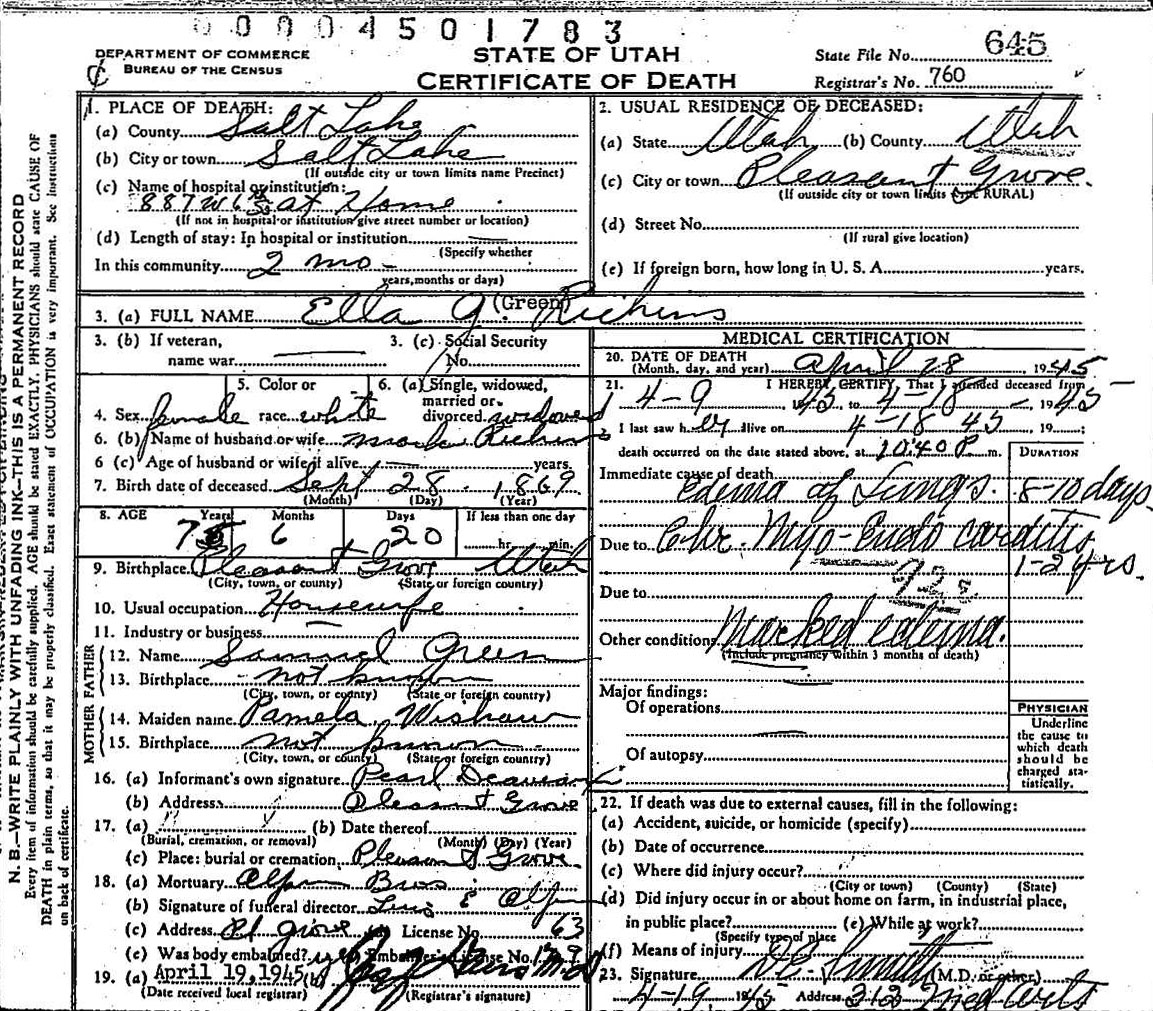 00004501783
DEPARTMENT OF COMMERCE
BUREAU OF THE CENSUS
STATE OF UTAH
CERTIFICATE OF DEATH
State File No. 645
Registrar's No. 760
1. PLACE OF DEATH:
(a) County Salt Lake
(b) City or town Salt Lake
(If outside city or town limits name Precinct)
(c) Name of hospital or institution:
887 W 6 at Home
(If not in hospital or institution give street number or location)
(d) Length of stay: In hospital or institution
(Specify whether
In this community 2 mo -
years, months or days)
2. USUAL RESIDENCE OF DECEASED:
(a) State Utah (b) County Utah
(c) City or town Pleasant Grove.
(If outside city or town limits RURAL)
(d) Street No.
(If rural give location)
(e) If foreign born, how long in U. S. A. years.
3. (a) FULL NAME Ella G. (Green) Richins
3. (b) If veteran, name war
3. (c) Social Security No.
4. Sex female
5. Color or race white
6. (a) Single, widowed, married or divorced widowed
6. (b) Name of husband or wife Richins
6 (c) Age of husband or wife if alive years.
7. Birth date of deceased Sept 28 - 1869
(Month) (Day) (Year)
8. AGE Years Months Days If less than one day
75 6 20 hr. min.
9. Birthplace Pleasant Grove Utah
(City, town, or county) (State or foreign country)
10. Usual occupation Housewife
11. Industry or business
FATHER
12. Name Samuel Green
13. Birthplace not known
(City, town, or county) (State or foreign country)
MOTHER
14. Maiden name Pamela Wishaw
15. Birthplace not known
(City, town, or county) (State or foreign country)
16. (a) Informant's own signature Pearl
(b) Address Pleasant Grove
17. (a) (b) Date thereof
(Burial, cremation, or removal) (Month) (Day) (Year)
(c) Place: burial or cremation Pleasant Grove
18. (a) Mortuary Bros
(b) Signature of funeral director
(c) Address Pl Grove License No. 63
(e) Was body embalmed? Embalmer's License No.
19. (a) April 19, 1945 (b)
(Date received local registrar) (Registrar's signature)
MEDICAL CERTIFICATION
20. DATE OF DEATH
(Month, day, and year) April 28, 1945
21. I HEREBY CERTIFY, That I attended deceased from
4-9 1945, to 4-18 - 1945
I last saw her alive on 4-18 45, 19
death occurred on the date stated above, at 10:40 P m.
DURATION
Immediate cause of death
edema of Lungs. 8-10 days
Due to Chr. Myo-Endo carditis
1-2 yrs.
Due to
Other conditions Marked edema.
(Include pregnancy within 3 months of death)
Major findings:
Of operations
Of autopsy
PHYSICIAN
Underline
the cause to
which death
should be
charged sta-
tistically.
22. If death was due to external causes, fill in the following:
(a) Accident, suicide, or homicide (specify)
(b) Date of occurrence
(c) Where did injury occur?
(City or town) (County) (State)
(d) Did injury occur in or about home on farm, in industrial place,
in public place? (e) While at work?
(Specify type of place
(f) Means of injury
23. Signature (M.D. or other)
4-19 1945 Address 312 Med Arts
N. B.—WRITE PLAINLY WITH UNFADING INK—THIS IS A PERMANENT RECORD
Every item of information should be carefully supplied. AGE should be stated EXACTLY. PHYSICIANS should state CAUSE OF
DEATH in plain terms, so that it may be properly classified. Exact statement of OCCUPATION is very important. See instructions
on back of certificate.